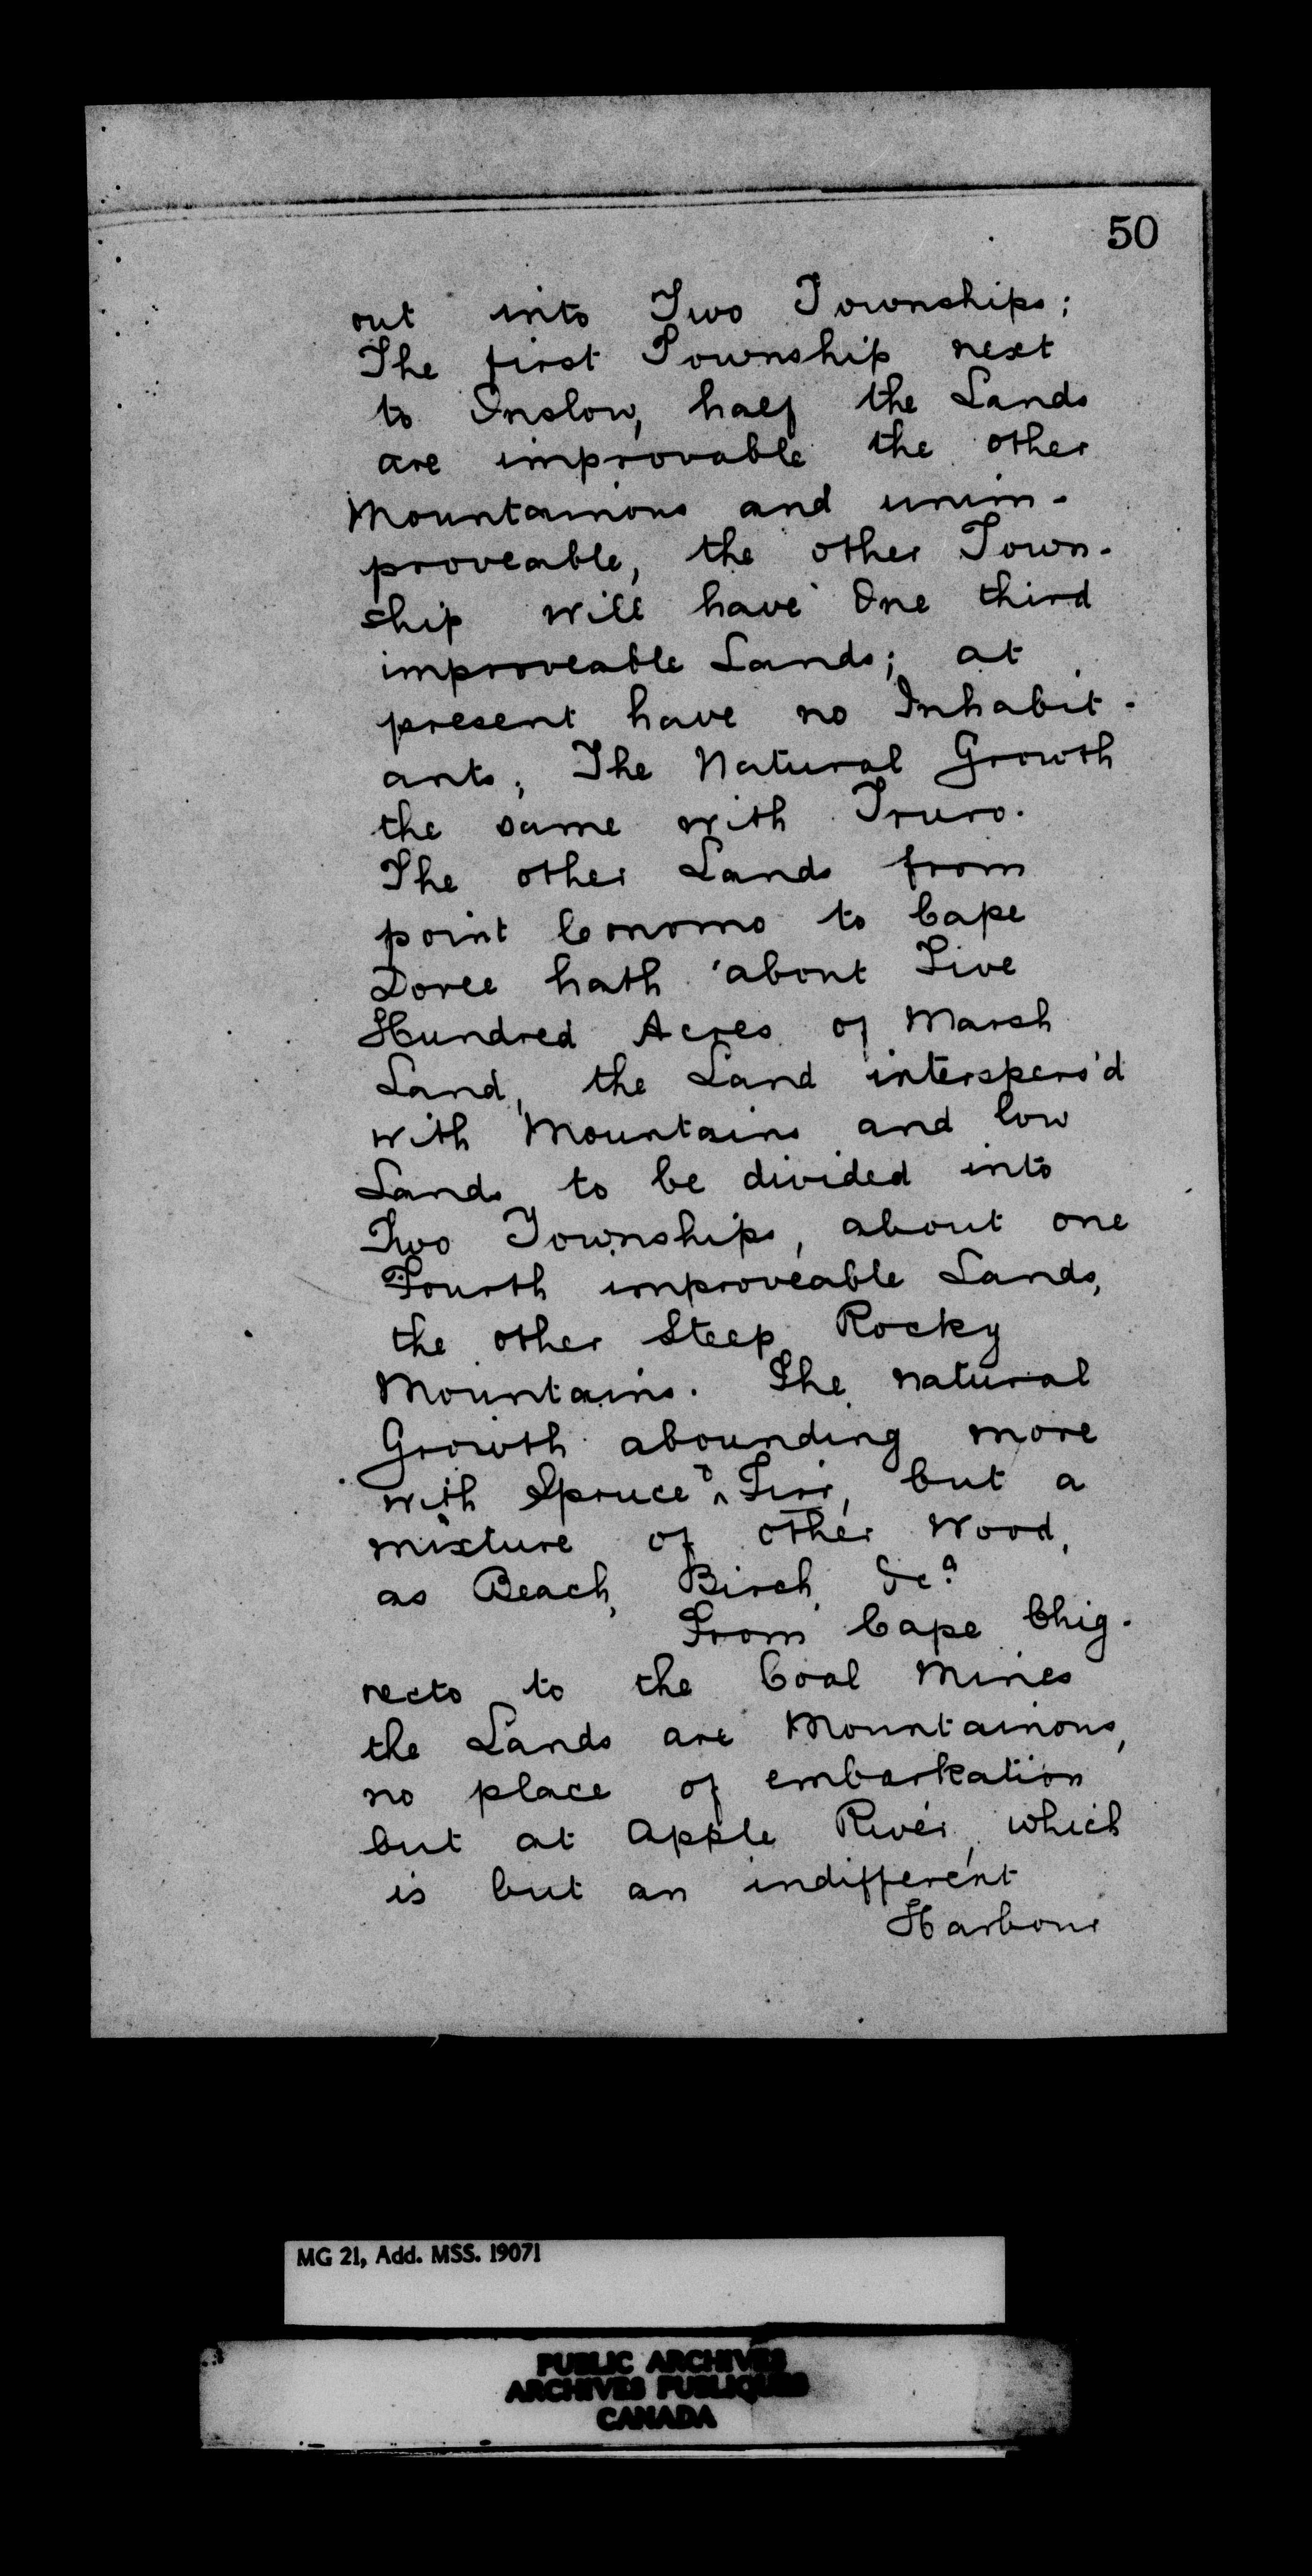 50
out into Two Townships;
The first Township next
to Onslow, half the Lands
are improvable the other
Mountainous and unim-
proveable, the other Town-
ship will have One third
improveable Lands; at
present have no Inhabit-
ants; The Natural Growth
the same with Truro.
The other Lands from
point Conomo to Cape
Doree hath about Five
Hundred Acres of Marsh
Land, the Land interspers'd
with Mountains and low
Lands to be divided into
Two Townships, about one
Fourth improveable Lands,
the other Steep Rocky
Mountains. The natural
Growth abounding more
with Spruce & Firr, but a
mixture of other Wood,
as Beach, Birch, &ca
From Cape Chig-
necto to the Coal Mines
the Lands are Mountainous,
no place of embarkation
but at Apple River, which
is but an indifferent
Harbour
MG 21, Add. MSS. 19071
PUBLIC ARCHIVES
ARCHIVES PUBLIQUES
CANADA